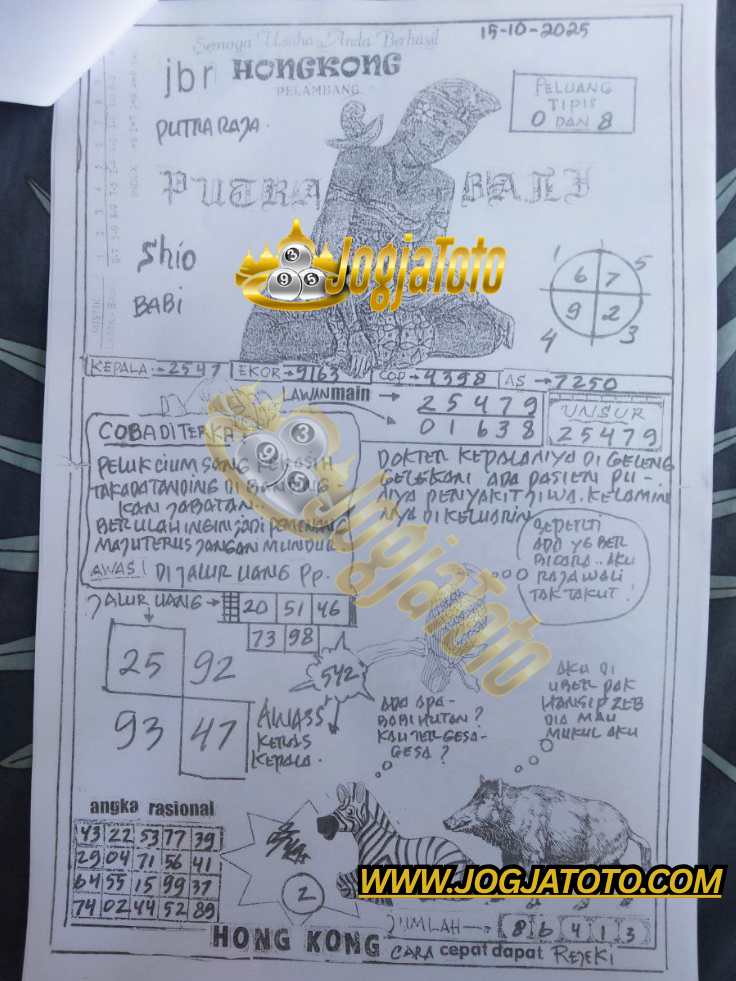 Semoga Usaha Anda Berhasil
15-10-2025
jbr HONGKONG
PELAMBANG
PUTRA RAJA.
PELUANG
TIPIS
0 DAN 8
PUTRA BALI
JogjaToto
Shio
BABi
1 5
6 7
9 2
4 3
KEPALA → 2547
EKOR → 9163
COP → 4398
AS → 7250
LAWAN main →
25479
01638
UNSUR
25479
COBA DITERKA
PELUK CIUM SANG KEKASIH
TAKADA TANDING DI BANDING-
KAN JABATAN..
BERULAH INGIN JADI PEMENANG
MAJU TERUS JANGAN MUNDUR
AWAS! DI JALUR UANG Pp.
DOKTER KEPALANIYA DI GELENG
GELEKAN ADA PASIEN PU-
NIYA PENYAKIT JIWA. KELAMIN
NIYA DI KELUARIN
SEPERTI
ADA YG BER
BICARA.. AKU
RAJAWALI
TAK TAKUT!
JogjaToto
JALUR UANG → 20 51 46
73 98
25 92
93 47
542
AWASS
KERAS
KEPALA.
ADA APA-
BABI HUTAN?
KAU TERGESA-
GESA?
AKU DI
UBER PAK
HANSIP ZEB
DIA MAU
MUKUL AKU
angka rasional
43 22 53 77 39
29 04 71 56 41
64 55 15 99 37
74 02 44 52 89
2
WWW.JOGJATOTO.COM
JUMLAH → 8 6 4 1 3
HONG KONG CARA cepat dapat REJEKI